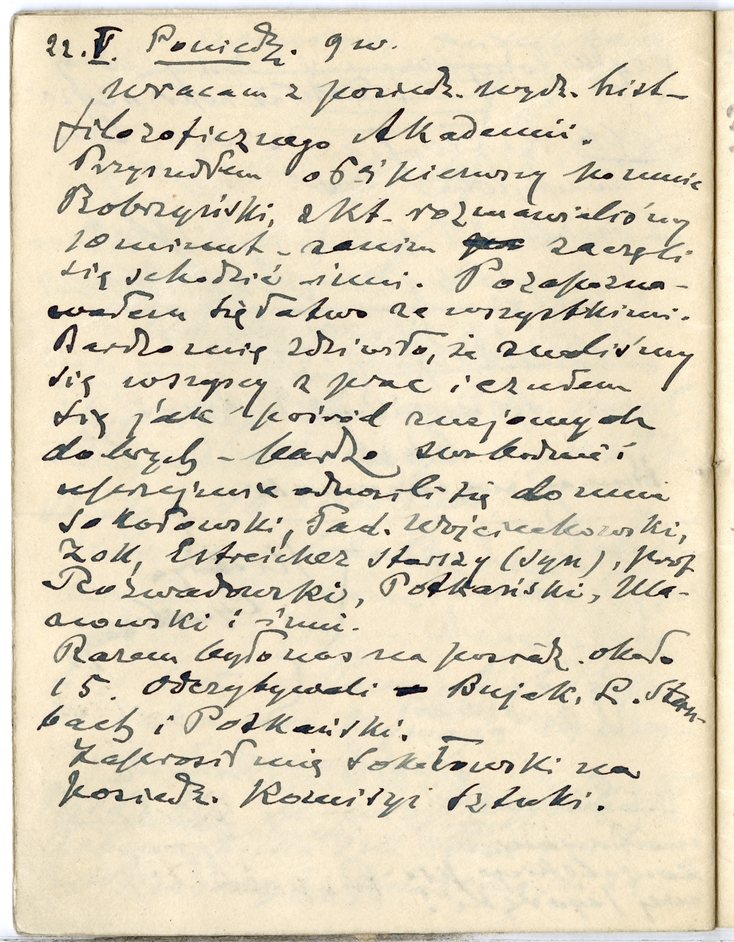 22.V. Poniedz. 9 w.
Wracam z posiedz. wydz. hist-
filozoficznego Akademii.
Przyszedłem o 6 i pierwszy po mnie
Bobrzyński, z kt. rozmawialiśmy
10 minut - zanim zaczęli
się schodzić inni. Pozapozna-
wałem się łatwo ze wszystkimi.
Bardzo mię zdziwiło, że znaliśmy
się wszyscy z prac i czułem
się jak pośród znajomych
dobrych - bardzo swobodnie i
uprzejmie odnosili się do mnie
Sokołowski, Tad. Wojciechowski,
Zoll, Estreicher starszy (syn), prof
Rozwadowski, Potkański, Ula-
nowski i inni.
Razem było nas na posiedz. około
15. Odczytywali - Bujak, L. Stern-
bach i Potkański.
Zaprosił mię Sokołowski na
posiedz. Komisyi Sztuki.